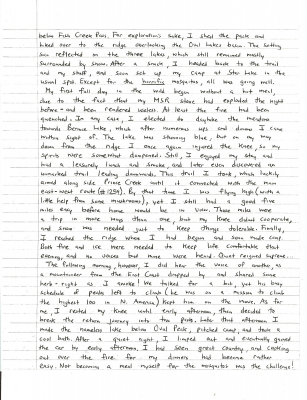 below Fish Creek Pass. For exploration's sake, I shed the pack and
hiked over to the ridge overlooking the Oval Lakes basin. The setting
sun reflected on the three lakes, which still remained mostly
surrounded by snow. After a smoke, I headed back to the trail
and my stuff, and soon set up my camp at Star Lake in the
usual spot. Except for the horrific mosquitos, all was going well.
My first full day in the wild began without a hot meal,
due to the fact that my MSR stove had exploded the night
before and been rendered useless. At least the fire had been
quenched. In any case, I elected to dayhike the meadow
towards Bernice Lake, which after numerous ups and downs I came
within sight of. The lake was stunning blue, but on my way
down from the ridge I once again injured the knee, so my
spirits were somewhat dampened. Still, I enjoyed my stay and
had a leisurely lunch and smoke, and later even discovered an
unmarked trail leading downwards. This trail I took, which luckily
wound along side Prince Creek until it connected with the main
east-west route (#1259). By that time I was flying high (with a
little help from some mushrooms), yet I still had a good five
miles easy before home would be in view. Those miles were
a trip in more ways than one, but my knee did cooperate,
and snow was needed just to keep things tolerable. Finally,
I reached the ridge where I had begun and soon made camp.
Both fire and ice were needed to keep life comfortable that
evening, and no voices but mine were heard. Quiet reigned supreme...
The following morning, however, I did hear the voice of another, as
a mountaineer from the East Coast dropped by and shared some
herb right as I awoke. We talked for a bit, yet his busy
schedule of peaks left to climb (he was on a mission to climb
the highest 100 in N. America) kept him on the move. As for
me, I rested my knee until early afternoon, then decided to
break the return journey into two parts. Late that afternoon I
made the nameless lake below Oval Peak, pitched camp, and took a
cool bath. After a quiet night, I limped out and eventually gained
the car by early afternoon. I had seen great country, and cooking
out over the fire for my dinners had become rather
easy. Not becoming a meal myself for the mosquitos was the challenge!